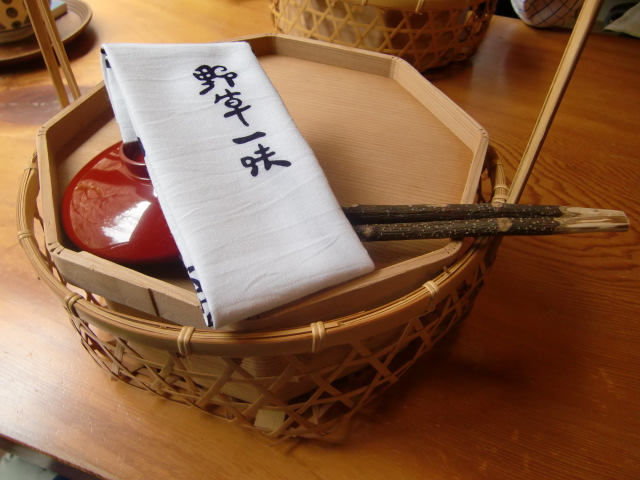 野草一味